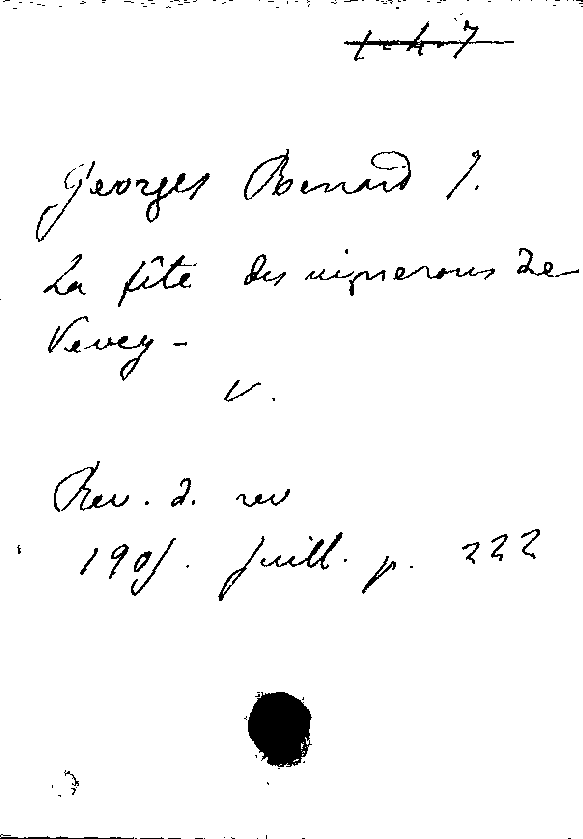 1-4.7
Georges Renard J.
La fête des vignerons de
Vevey -
V.
Rev. d. rev
1905. Juill. p. 222